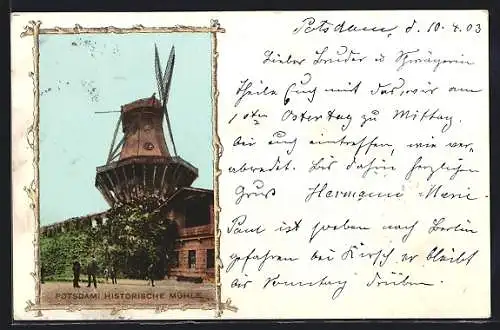 Potsdam, d. 10.4.03
Lieber Bruder u Schwägerin
Theile Euch mit das wir am
1ten Ostertag zu Mittag
bei Euch eintreffen, wie ver-
abredet. Bis dahin herzlichen
Gruss Hermann Marie.
Paul ist soeben nach Berlin
gefahren bei Kirsch er bleibt
bis Sonntag drüben.
POTSDAM: HISTORISCHE MÜHLE